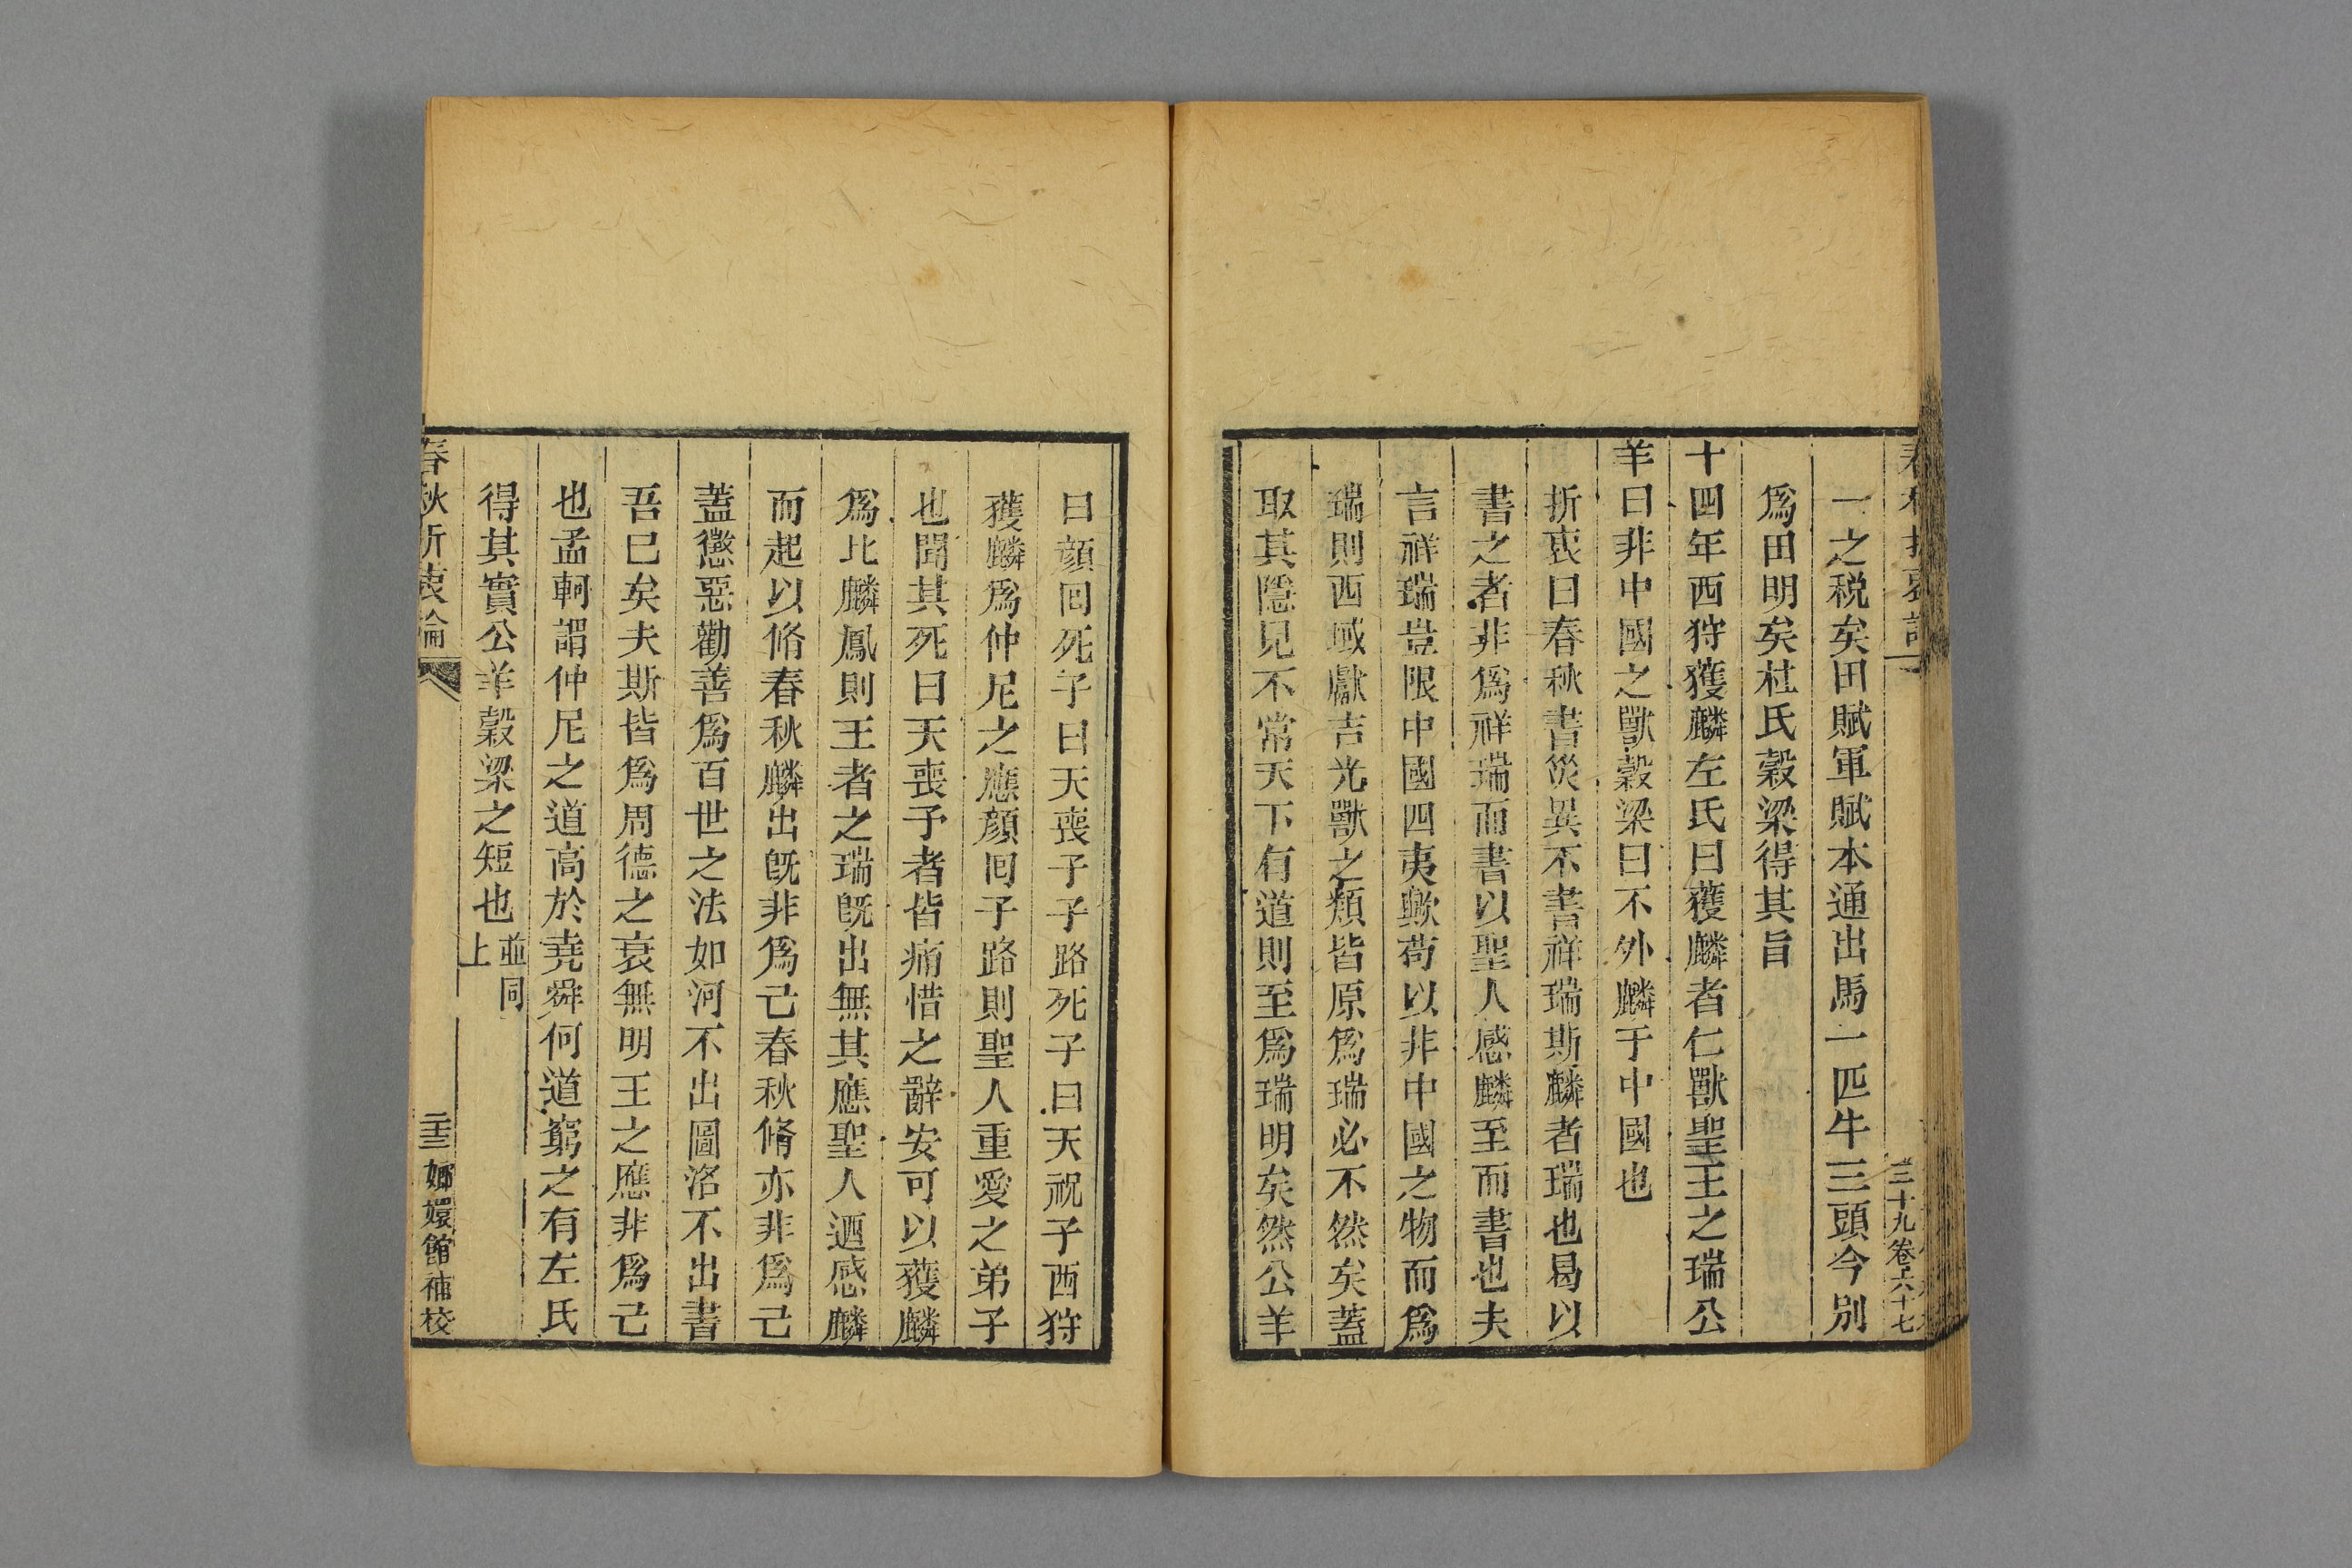 一之税矣田賦軍賦本通出馬一匹牛三頭今別
爲田明矣杜氏穀梁得其旨
十四年西狩獲麟左氏曰獲麟者仁獸聖王之瑞公
羊曰非中國之獸穀梁曰不外麟于中國也
折衷曰春秋書災異不書祥瑞斯麟者瑞也曷以
書之者非爲祥瑞而書以聖人感麟至而書也夫
言祥瑞豈限中國四夷歟苟以非中國之物而爲
瑞則西域獻吉光獸之類皆原爲瑞必不然矣蓋
取其隱見不常天下有道則至爲瑞明矣然公羊
三十九卷六十七
曰顔回死子曰天喪子子路死子曰天祝子西狩
獲麟爲仲尼之應顔回子路則聖人重愛之弟子
也聞其死曰天喪予者皆痛惜之辭安可以獲麟
爲比麟鳳則王者之瑞既出無其應聖人迺感麟
而起以脩春秋麟出旣非爲己春秋脩亦非爲己
蓋懲惡勸善爲百世之法如河不出圖洛不出書
吾已矣夫斯皆爲周德之衰無明王之應非爲己
也孟軻謂仲尼之道高於堯舜何道窮之有左氏
得其實公羊穀梁之短也並同上
春秋折衷論
二十三
嫏嬛館補校